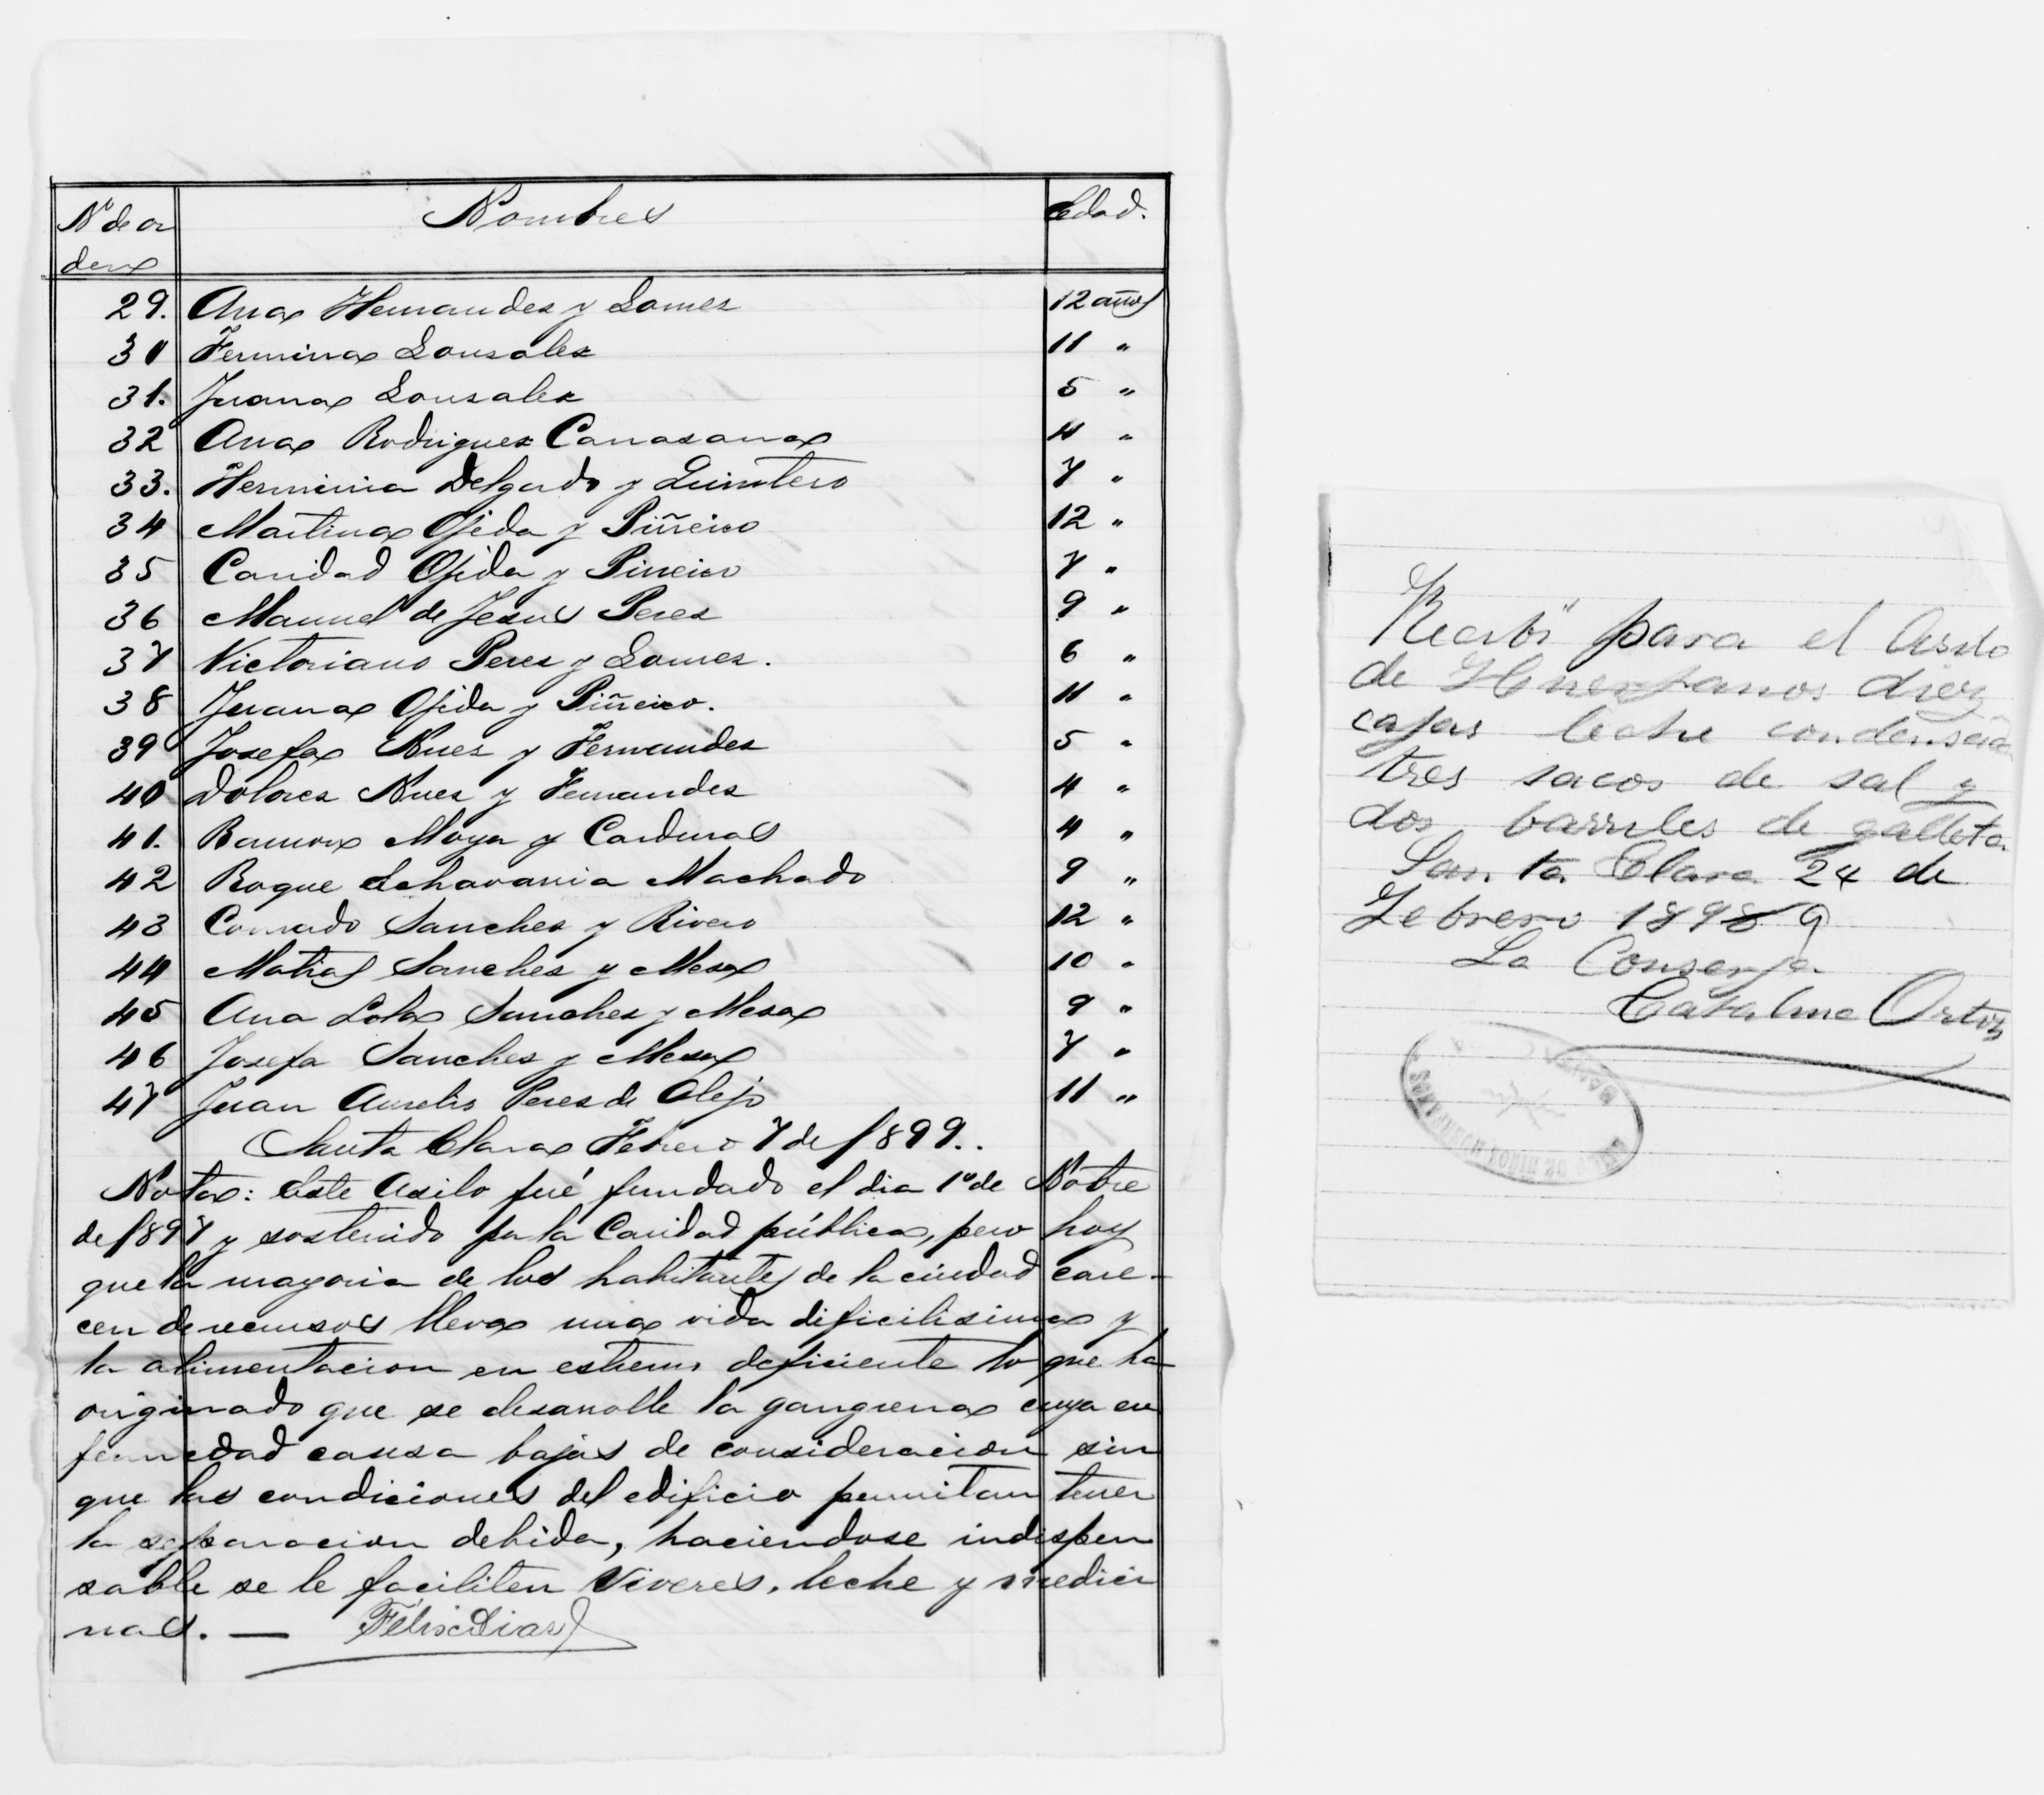 Nº de or
den
Nombres
Edad.
29. Ana Hernandes y Gomes 12 años
30 Fermina Gonsales 11 "
31. Juana Gonsales 5 "
32 Ana Rodrigues Carrasana 4 "
33. Herminia Delgado y Quintero 7 "
34 Martina Ojeda y Piñeiro 12 "
35 Caridad Ojeda y Pineiro 7 "
36 Manuel de Jesus Peres 9 "
37 Victoriano Peres y Gomes. 6 "
38 Juana Ojeda y Piñeiro. 11 "
39 Josefa Nues y Fernandes 5 "
40 Dolores Nues y Fernandes 4 "
41. Ramon Moya y Cardenas 4 "
42 Roque Echavarria Machado 9 "
43 Conrado Sanches y Rivero 12 "
44 Matias Sanches y Mesa 10 "
45 Ana Lola Sanches y Mesa 9 "
46 Josefa Sanches y Mesa 7 "
47 Juan Aurelio Peres de Alejo 11 "
Santa Clara Febrero 7 de 1899..
Nota: Este Asilo fué fundado el dia 1º de Nobre
de 1897 y sostenido por la Caridad pública, pero hoy
que la mayoria de los habitantes de la ciudad care-
cen de recursos lleva una vida dificilisima y
la alimentacion en estremo deficiente lo que ha
originado que se desarrolle la gangrena cuya en
fermedad causa bajas de consideracion sin
que las condiciones del edificio permitan tener
la separacion debida, haciendose indispen
sable se le faciliten viveres, leche y medici
nas. — Félix Dias
Recibi para el Asilo
de Huerfanos diez
cajas leche condensada
tres sacos de sal y
dos barriles de galleta
Santa Clara 24 de
Febrero 18989
La Conserje
Catalina Ortiz
ASILO DE NIÑOS HUERFANOS